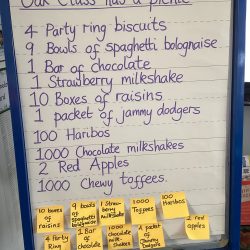 Oak Class has a picnic
4 Party ring biscuits
9 Bowls of spaghetti bolognaise
1 Bar of chocolate
1 Strawberry milkshake
10 Boxes of raisins
1 packet of jammy dodgers
100 Haribos
1000 Chocolate milkshakes
2 Red Apples
1000 Chewy toffees.
10 boxes of raisins
9 bowls of spaghetti bolognaise
1 Straw berry milkshake
1000 Toffees
100 Haribos
2 red apples
4 Party Ring
1 Bar of chocolate
1000 chocolate milk-shakes
A packet of Jammy Dodgers